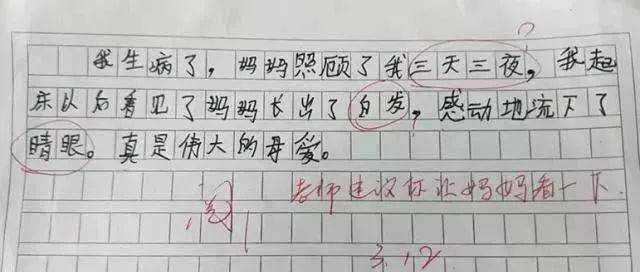 ?
我生病了，妈妈照顾了我三天三夜，我起
床以后看见了妈妈长出了白发，感动地流下了
晴眼。真是伟大的母爱。
老师建议你让妈妈看一下
阅
3.12